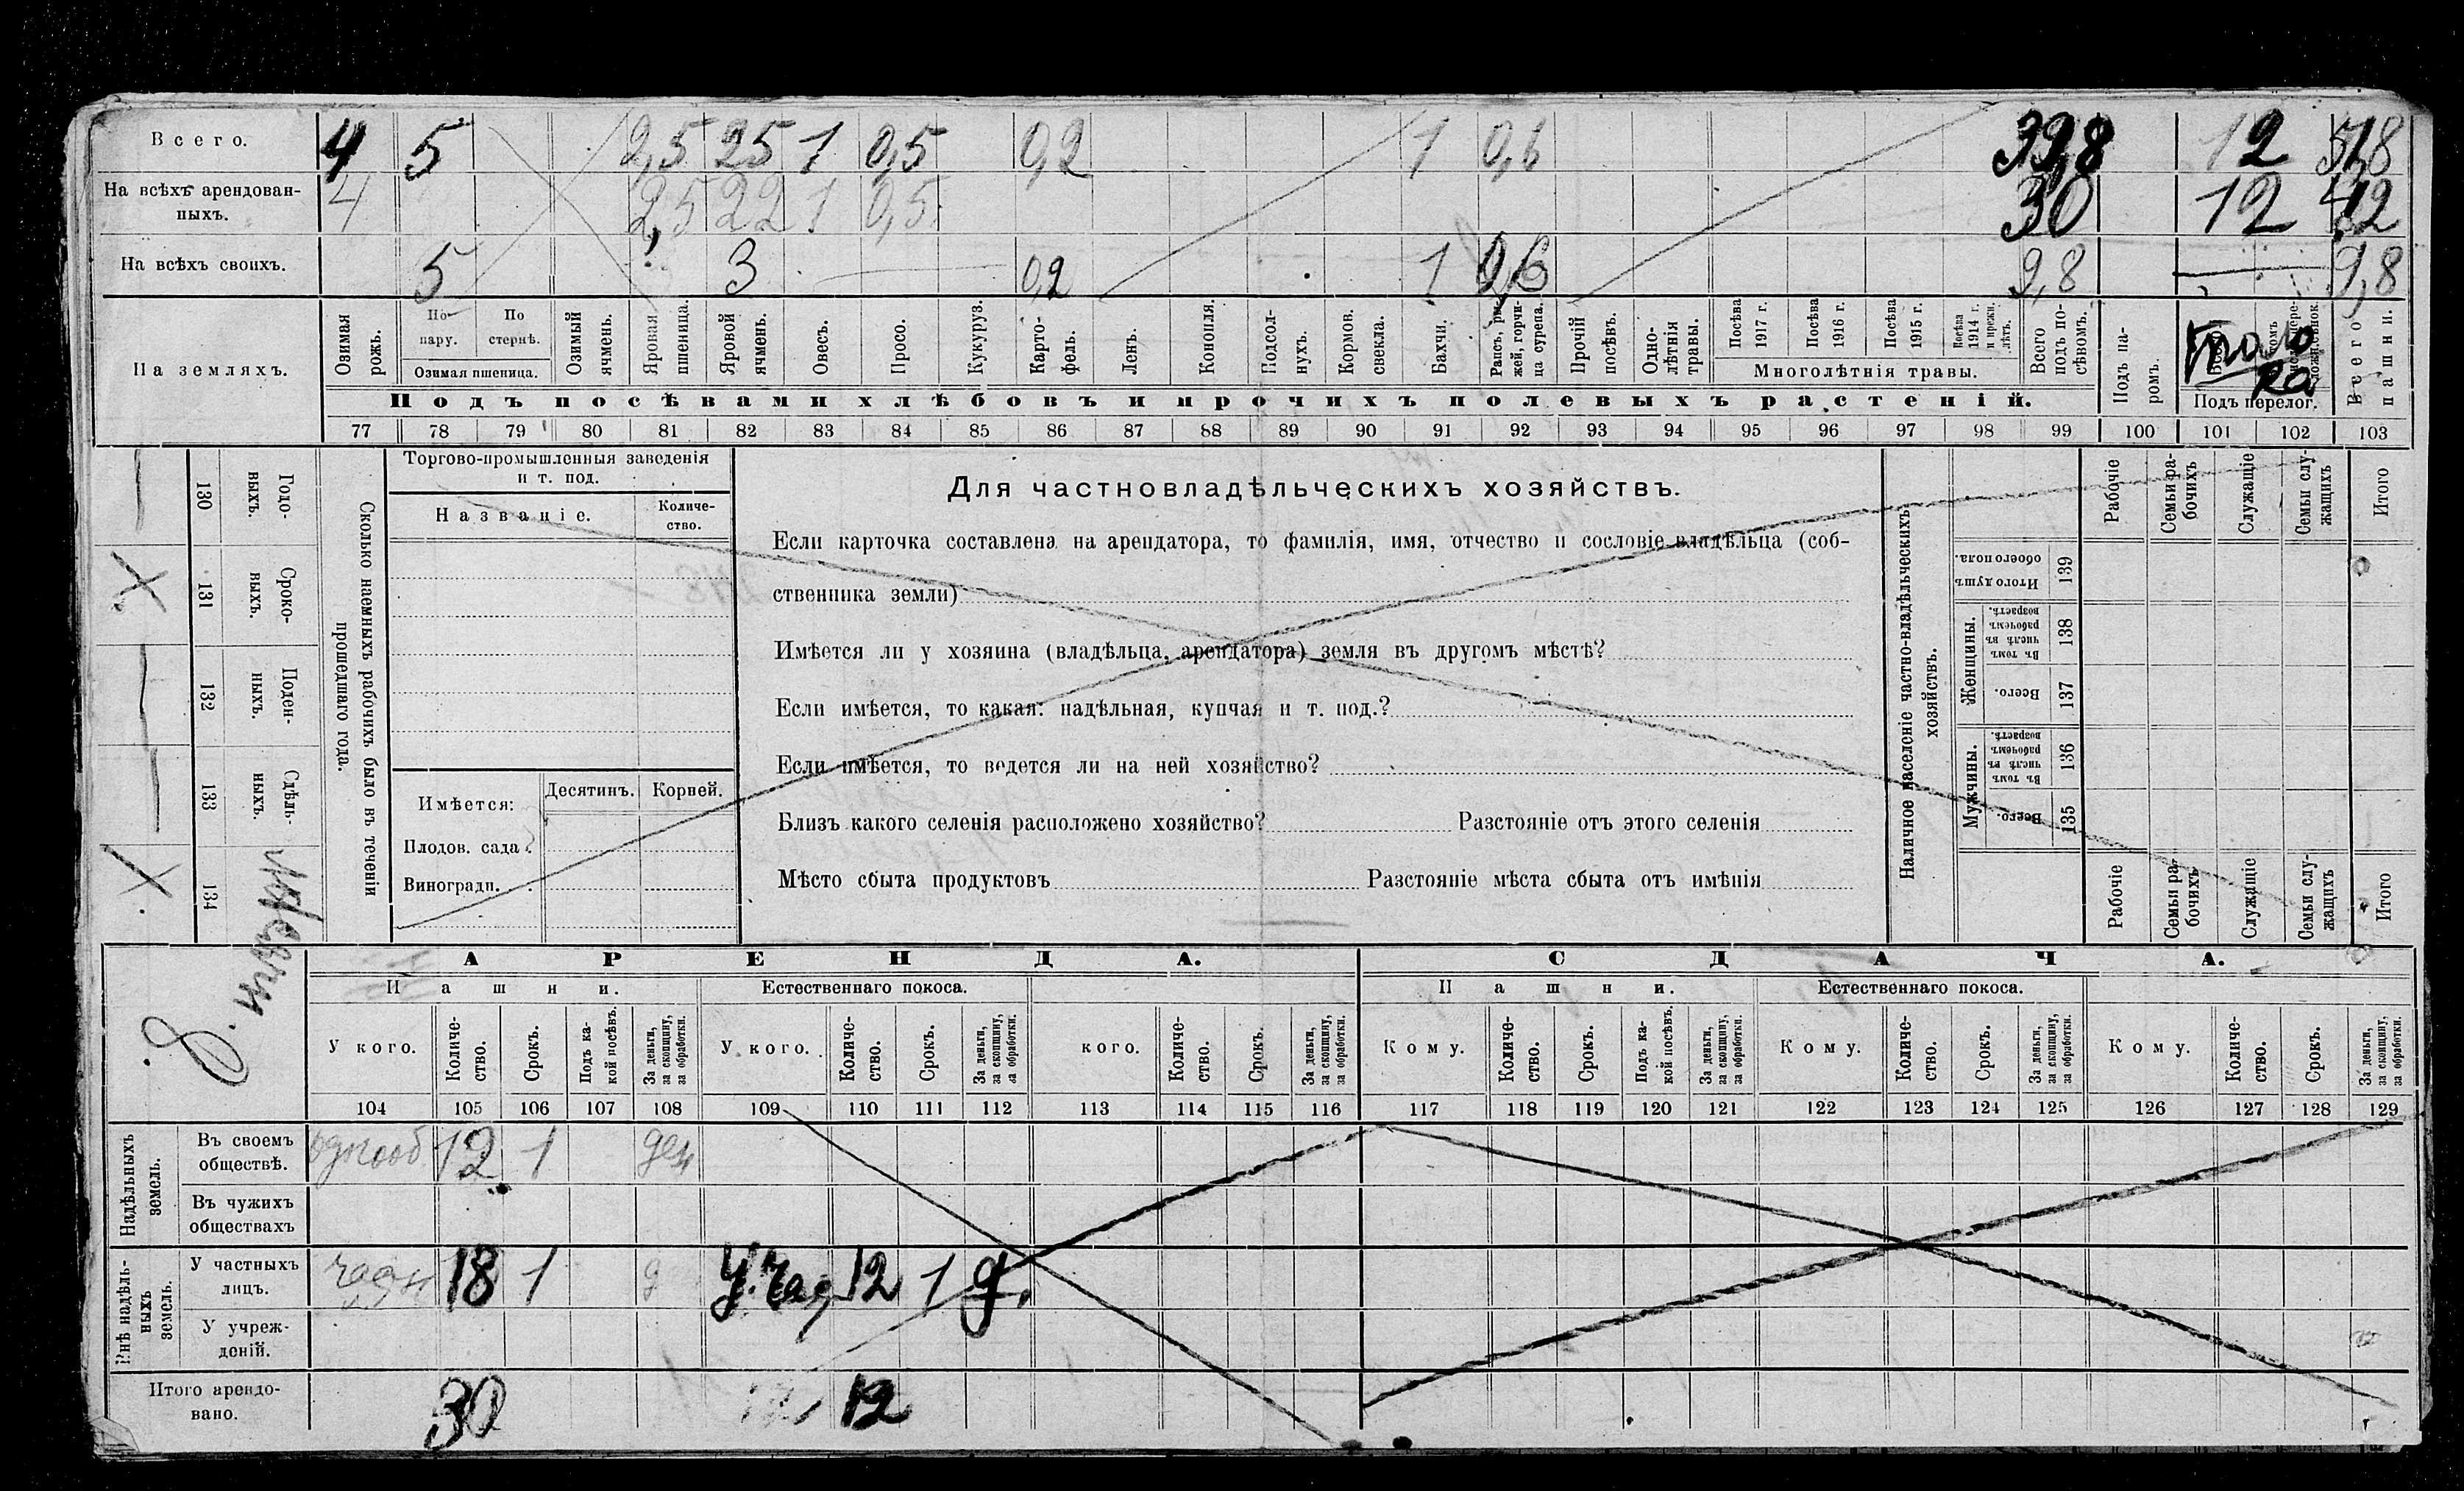 Всего. 4 5 2,5 25 1 0,5 0,2 1 0,6 39,8 12 51,8
На всѣхъ арендован-
ныхъ. 4 2,5 22 1 0,5 30 12 42
На всѣхъ своихъ. 5 3 0,2 1 0,6 9,8 9,8
На земляхъ.
Озимая рожь.
По пару.
По стернѣ.
Озимая пшеница.
Озимый ячмень.
Яровая пшеница.
Яровой ячмень.
Овесъ.
Просо.
Кукуруз.
Карто-
фель.
Ленъ.
Конопля.
Подсол-
нухъ.
Кормов. свекла.
Бахчи.
Рапсъ, ры-
жей, горчи-
ца сурепа.
Прочій посѣвъ.
Одно-
лѣтнія травы.
Посѣва 1917 г.
Посѣва 1916 г.
Посѣва 1915 г.
Посѣва 1914 г. и прежн. лѣтъ.
Многолѣтнія травы.
Всего подъ по-
сѣвомъ.
Подъ па-
ромъ.
Подъ перелог.
Всего пашни.
Подъ посѣвами хлѣбовъ и прочихъ полевыхъ растеній.
77 78 79 80 81 82 83 84 85 86 87 88 89 90 91 92 93 94 95 96 97 98 99 100 101 102 103
Сколько наемныхъ рабочихъ было въ теченіи
прошедшаго года.
Годо-
выхъ.
130
Сроко-
выхъ.
131
Поден-
ныхъ.
132
Сдѣль-
ныхъ.
133
134
Торгово-промышленныя заведенія
и т. под.
Названіе.
Количе-
ство.
Имѣется:
Десятинъ. Корней.
Плодов. сада
Виноградн.
Для частновладѣльческихъ хозяйствъ.
Если карточка составлена на арендатора, то фамилія, имя, отчество и сословіе владѣльца (соб-
ственника земли)
Имѣется ли у хозяина (владѣльца, арендатора) земля въ другомъ мѣстѣ?
Если имѣется, то какая: надѣльная, купчая и т. под.?
Если имѣется, то ведется ли на ней хозяйство?
Близъ какого селенія расположено хозяйство? Разстояніе отъ этого селенія
Мѣсто сбыта продуктовъ Разстояніе мѣста сбыта отъ имѣнія
Наличное населеніе частно-владѣльческихъ
хозяйствъ.
Рабочіе
Семьи ра-
бочихъ
Служащіе
Семьи слу-
жащихъ
Итого
Итого душъ обоего пола. 139
Женщины.
Въ томъ числѣ въ рабочемъ возрастѣ. 138
Всего. 137
Мужчины.
Въ томъ числѣ въ рабочемъ возрастѣ. 136
Всего. 135
Рабочіе
Семьи ра-
бочихъ
Служащіе
Семьи слу-
жащихъ
Итого
АРЕНДА. СДАЧА.
Пашни. Естественнаго покоса. Пашни. Естественнаго покоса.
У кого. Количе-
ство. Срокъ. Подъ ка-
кой посѣвъ. За деньги,
за скопщину,
за обработки.
У кого. Количе-
ство. Срокъ. За деньги,
за скопщину,
за обработки.
кого. Количе-
ство. Срокъ. За деньги,
за скопщину,
за обработки.
Кому. Количе-
ство. Срокъ. Подъ ка-
кой посѣвъ. За деньги,
за скопщину,
за обработки.
Кому. Количе-
ство. Срокъ. За деньги,
за скопщину,
за обработки.
Кому. Количе-
ство. Срокъ. За деньги,
за скопщину,
за обработки.
104 105 106 107 108 109 110 111 112 113 114 115 116 117 118 119 120 121 122 123 124 125 126 127 128 129
Надѣльныхъ
земель.
Въ своемъ
обществѣ. однооб 12 1 ден
Въ чужихъ
обществахъ
Внѣ надѣль-
ныхъ
земель.
У частныхъ
лицъ. 18 1 д 12 1 д.
У учреж-
деній.
Итого арендо-
вано. 30 12